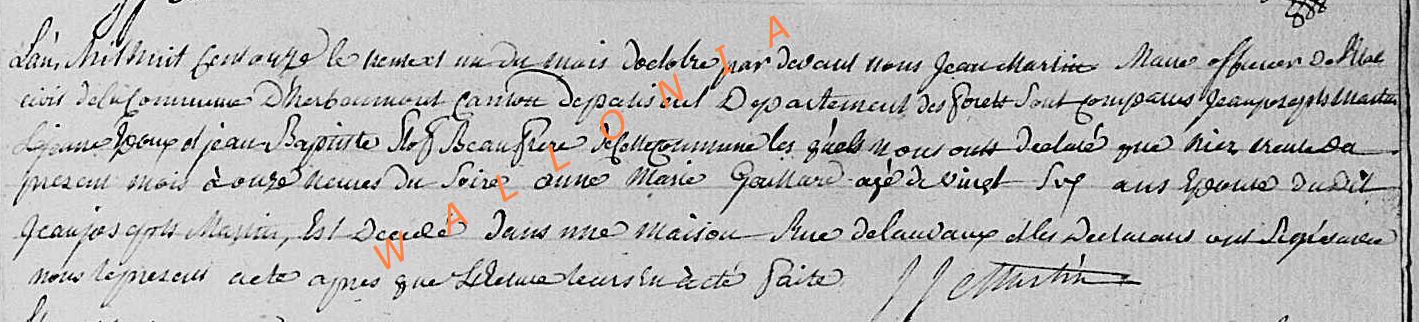 L'an, Mil huit Cent onze le trente et un du mois d'octobre, par devant nous Jean Martin Maire officier de l'Etat
civil de la Commune D'herbeumont Canton de paliseul Departement des forets Sont Comparus Jean joseph Martin
Lejeune Epoux et jean Baptiste Slof Beaufrere de cette Commune les quels Nous ont declaré que hier trente du
present mois à onze heures du Soire anne Marie Goulard agé de vingt Six ans Epouse du dit
Jean joseph Martin, Est Decedé dans une maison Rue de lauvaux et les Declarans ont Signé avec
nous le present acte apres que Lecture leurs En à eté faite. J J Martin
WALLONIA